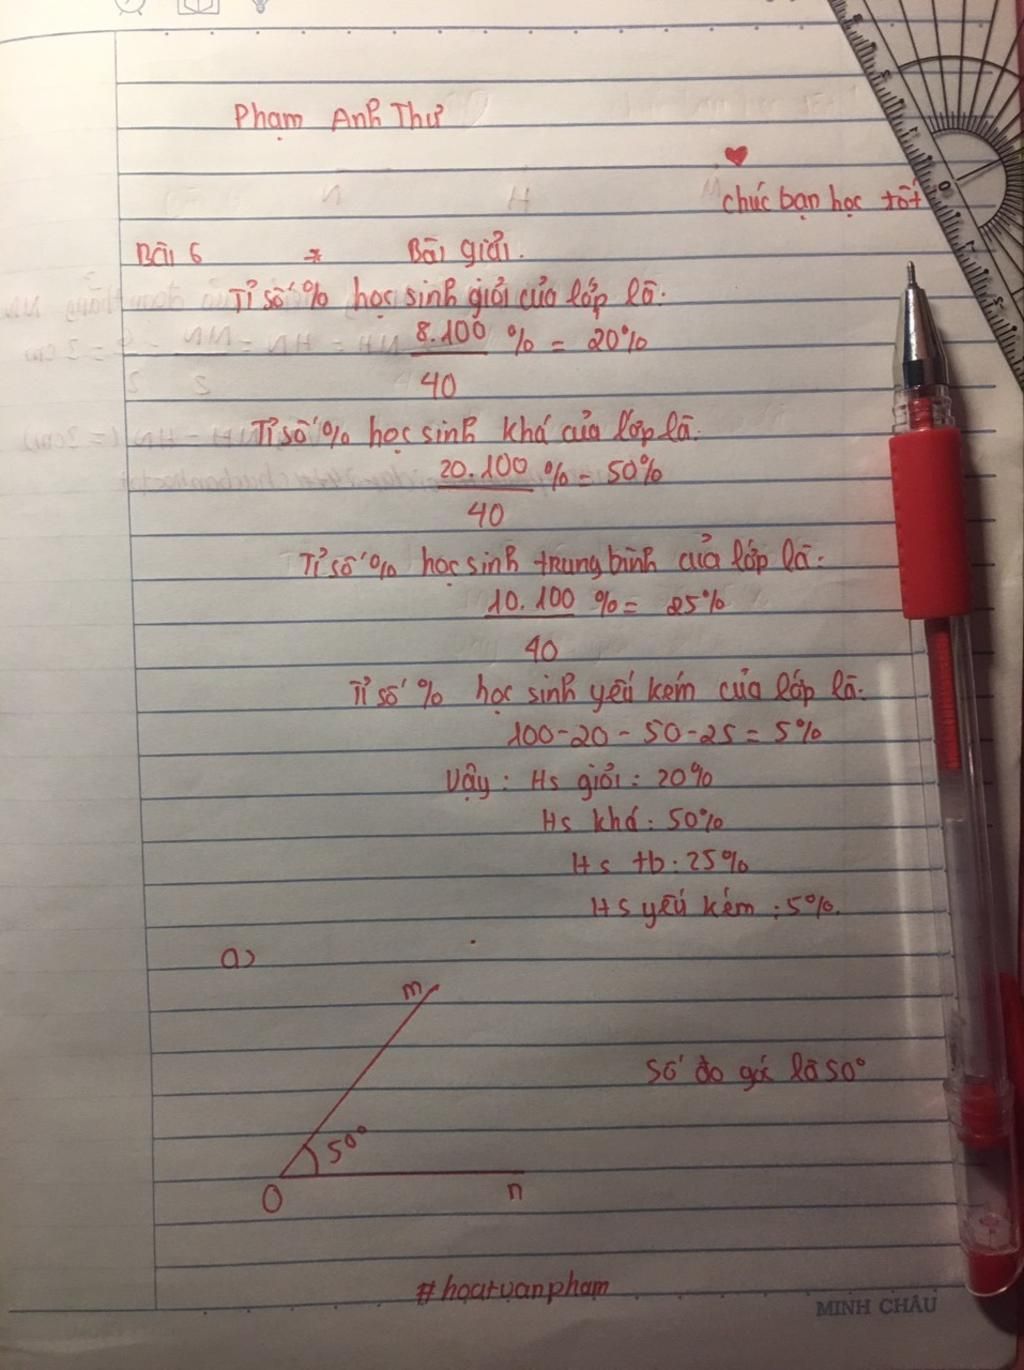 Phạm Anh Thư
chúc bạn học tốt
Bài 6 * Bài giải.
Tỉ số % học sinh giỏi của lớp là:
8.100 % = 20%
40
Tỉ số % học sinh khá của lớp là:
20.100 % = 50%
40
Tỉ số % học sinh trung bình của lớp là:
10.100 % = 25%
40
Tỉ số % học sinh yếu kém của lớp là:
100-20-50-25 = 5%
Vậy: Hs giỏi: 20%
Hs khá: 50%
Hs tb: 25%
Hs yếu kém: 5%.
a)
m
Số đo góc là 50°
50°
O n
#hoatuanpham
MINH CHÂU